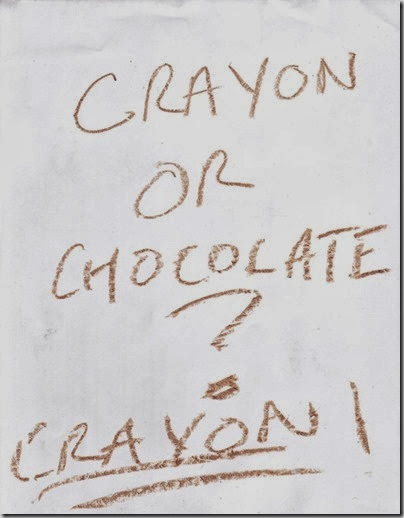 CRAYON
OR
CHOCOLATE
?
CRAYON!